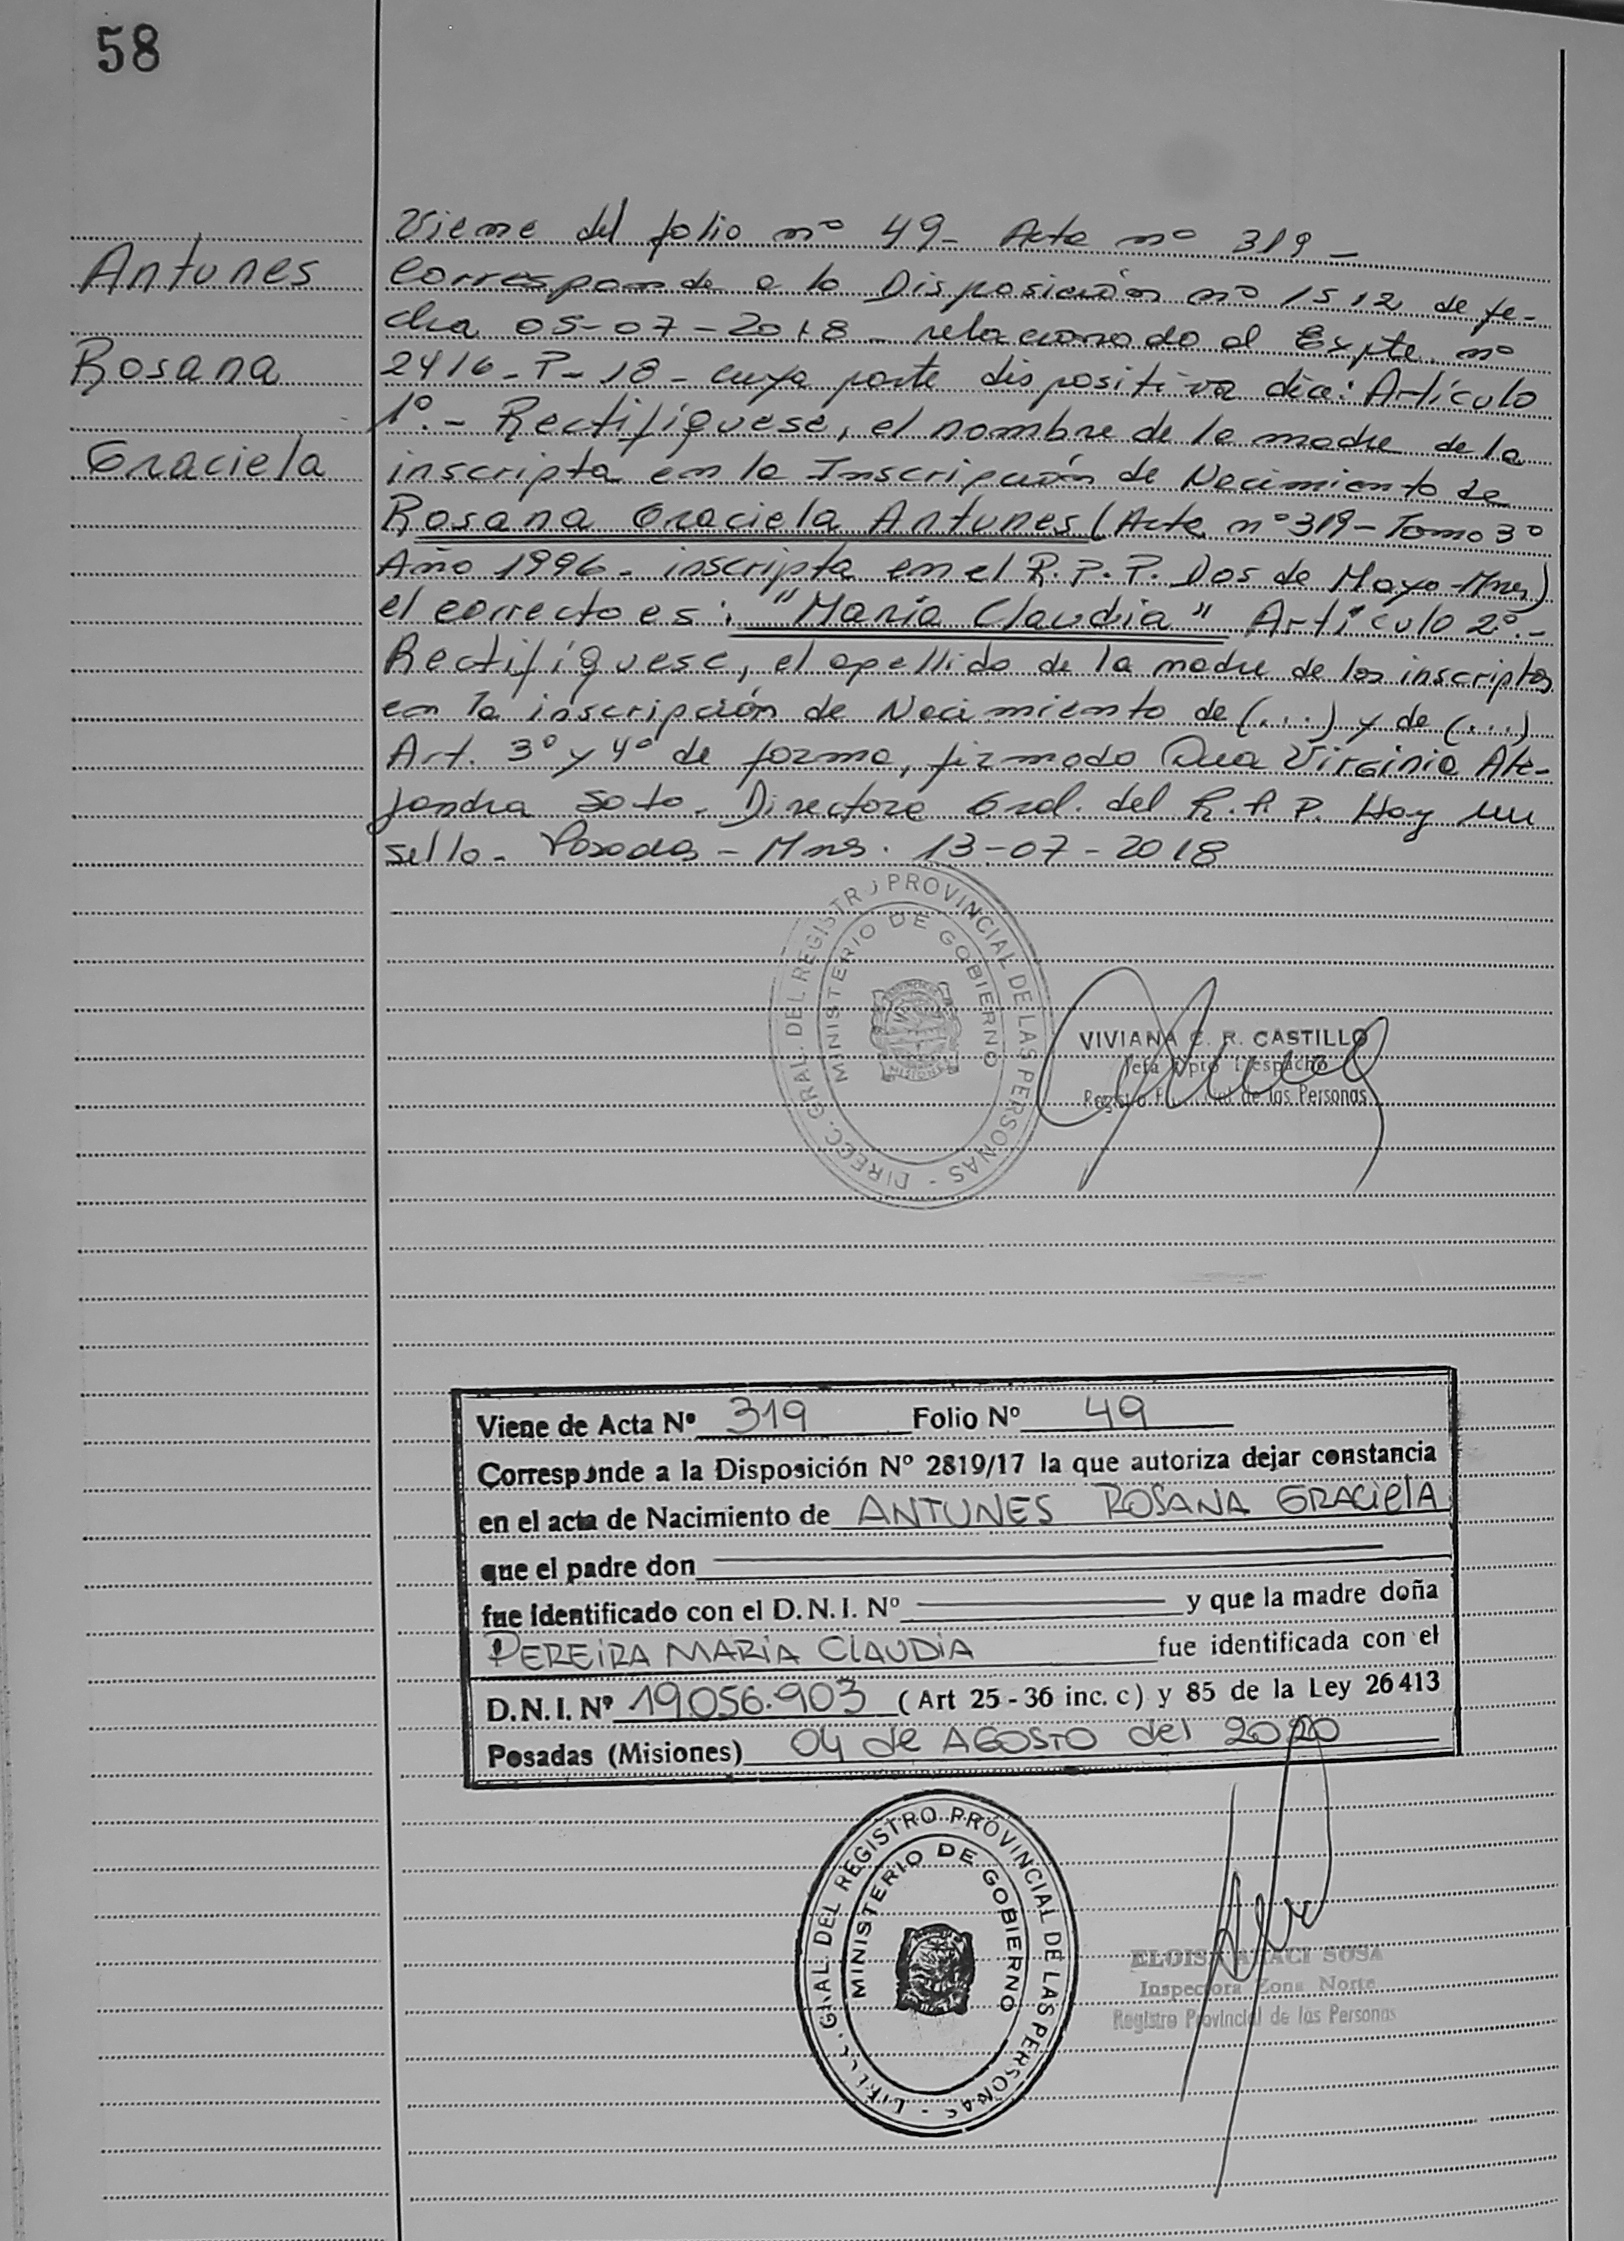 58
Viene del folio nº 49- Acta nº 319-
Antunes
Rosana
Graciela
Corresponde a la Disposición nº 1512 de fe-
cha 05-07-2018- relacionado al Expte. nº
2416-P-18- cuya parte dispositiva dice: Artículo
1º.- Rectifíquese, el nombre de la madre de la
inscripta en la Inscripción de Nacimiento de
Rosana Graciela Antunes (Acta nº 319- Tomo 3º
Año 1996- inscripta en el R.P.P. Dos de Mayo-Mns)
el correcto es: "Maria Claudia" Artículo 2º.-
Rectifíquese, el apellido de la madre de los inscriptos
en la inscripción de Nacimiento de (...) y de (...)
Art. 3º y 4º de forma, firmado Dra Virginia Ale-
jandra Soto. Directora Gral. del R.P.P. Hay un
sello- Posadas - Mns. 13-07-2018
DIRECC. GRAL. DEL REGISTRO PROVINCIAL DE LAS PERSONAS -
MINISTERIO DE GOBIERNO
MISIONES
VIVIANA C. R. CASTILLO
Jefa Dpto Despacho
Registro Provincial de las Personas
Viene de Acta Nº 319 Folio Nº 49
Corresponde a la Disposición Nº 2819/17 la que autoriza dejar constancia
en el acta de Nacimiento de ANTUNES ROSANA GRACIELA
que el padre don
fue identificado con el D.N.I. Nº y que la madre doña
PEREIRA MARIA CLAUDIA fue identificada con el
D.N.I. Nº 19056.903 (Art 25 - 36 inc. c) y 85 de la Ley 26413
Posadas (Misiones) 04 de AGOSTO del 2020
DIRECC. GRAL. DEL REGISTRO PROVINCIAL DE LAS PERSONAS -
MINISTERIO DE GOBIERNO
ELOISA ARACI SOSA
Inspectora Zona Norte
Registro Provincial de las Personas